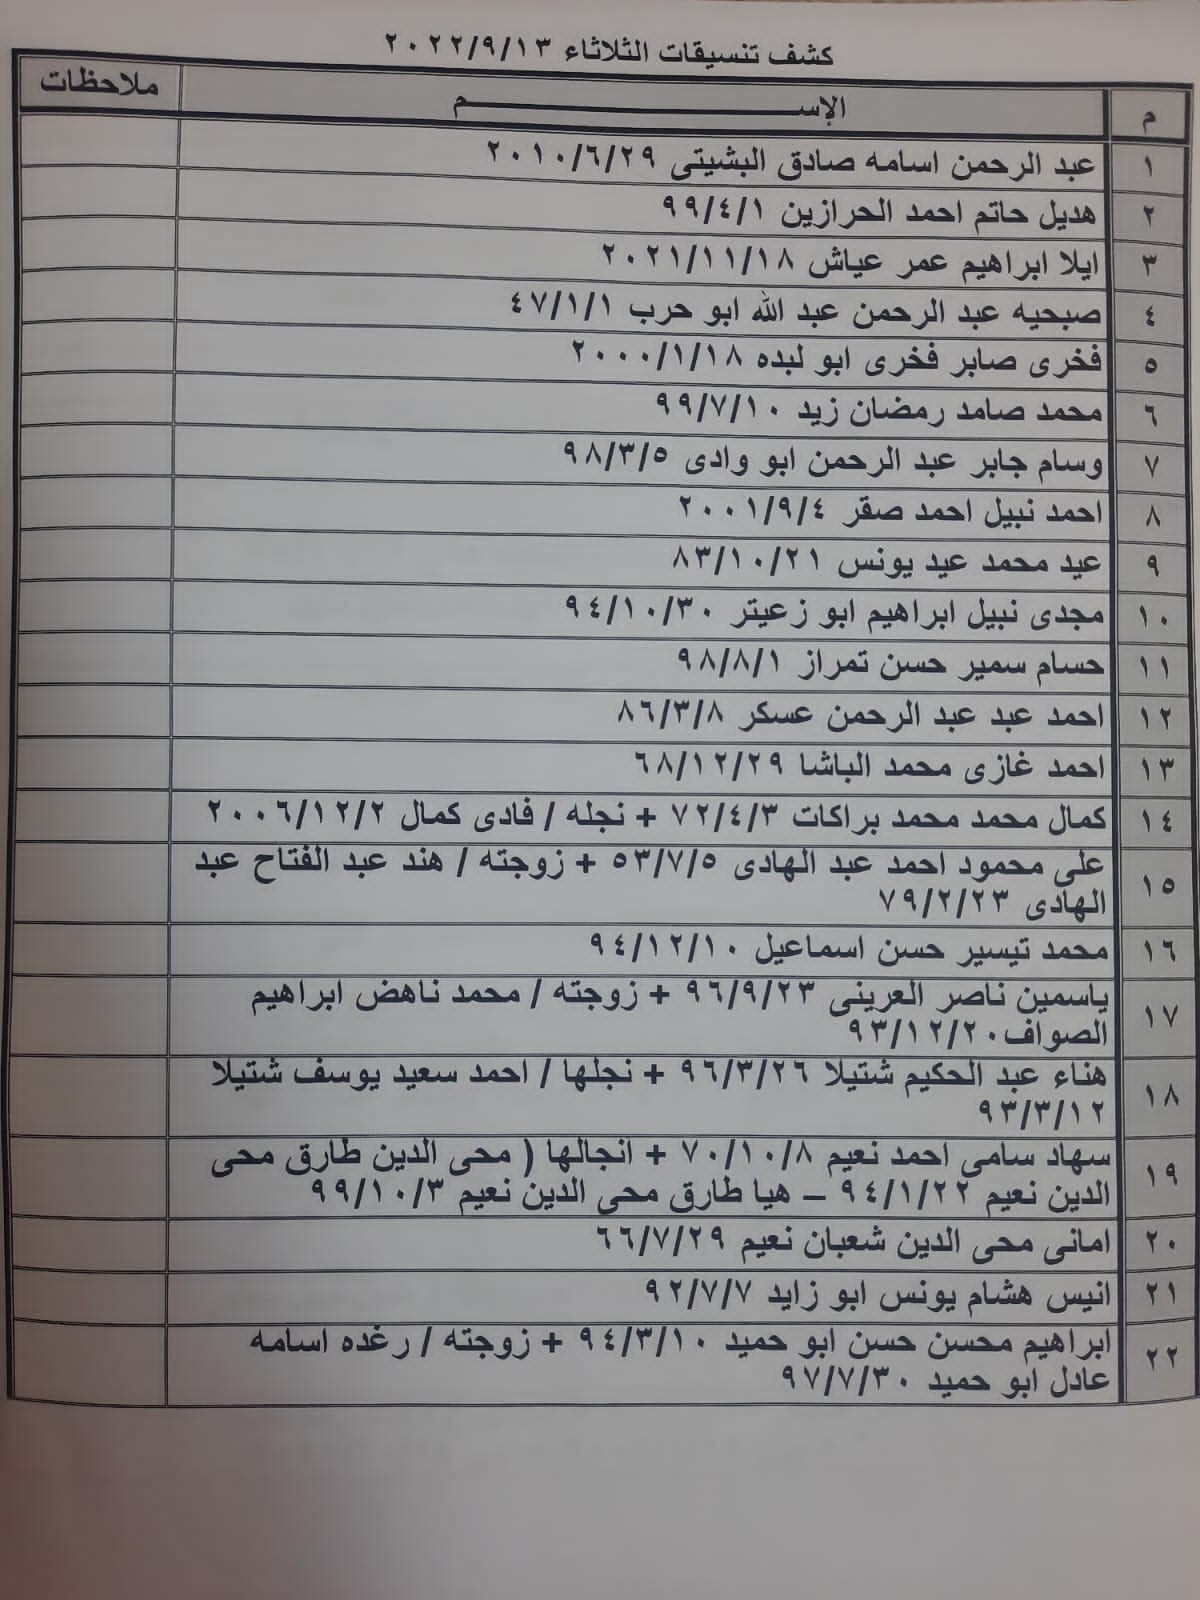 كشف تنسيقات الثلاثاء ٢٠٢٢/٩/١٣
م الإســــم ملاحظات
١ عبد الرحمن اسامه صادق البشيتى ٢٠١٠/٦/٢٩
٢ هديل حاتم احمد الحرازين ٩٩/٤/١
٣ ايلا ابراهيم عمر عياش ٢٠٢١/١١/١٨
٤ صبحيه عبد الرحمن عبد الله ابو حرب ٤٧/١/١
٥ فخرى صابر فخرى ابو لبده ٢٠٠٠/١/١٨
٦ محمد صامد رمضان زيد ٩٩/٧/١٠
٧ وسام جابر عبد الرحمن ابو وادى ٩٨/٣/٥
٨ احمد نبيل احمد صقر ٢٠٠١/٩/٤
٩ عيد محمد عيد يونس ٨٣/١٠/٢١
١٠ مجدى نبيل ابراهيم ابو زعيتر ٩٤/١٠/٣٠
١١ حسام سمير حسن تمراز ٩٨/٨/١
١٢ احمد عبد عبد الرحمن عسكر ٨٦/٣/٨
١٣ احمد غازى محمد الباشا ٦٨/١٢/٢٩
١٤ كمال محمد محمد براكات ٧٢/٤/٣ + نجله / فادى كمال ٢٠٠٦/١٢/٢
١٥ على محمود احمد عبد الهادى ٥٣/٧/٥ + زوجته / هند عبد الفتاح عبد
الهادى ٧٩/٢/٢٣
١٦ محمد تيسير حسن اسماعيل ٩٤/١٢/١٠
١٧ ياسمين ناصر العرينى ٩٦/٩/٢٣ + زوجته / محمد ناهض ابراهيم
الصواف٩٣/١٢/٢٠
١٨ هناء عبد الحكيم شتيلا ٩٦/٣/٢٦ + نجلها / احمد سعيد يوسف شتيلا
٩٣/٣/١٢
١٩ سهاد سامى احمد نعيم ٧٠/١٠/٨ + انجالها ( محى الدين طارق محى
الدين نعيم ٩٤/١/٢٢ – هيا طارق محى الدين نعيم ٩٩/١٠/٣
٢٠ امانى محى الدين شعبان نعيم ٦٦/٧/٢٩
٢١ انيس هشام يونس ابو زايد ٩٢/٧/٧
٢٢ ابراهيم محسن حسن ابو حميد ٩٤/٣/١٠ + زوجته / رغده اسامه
عادل ابو حميد ٩٧/٧/٣٠